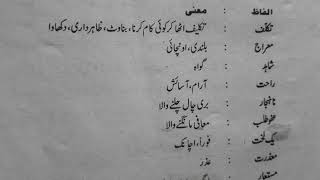 الفاظ : معنی
تکلف : تکلیف اٹھا کر کوئی کام کرنا، بناوٹ، ظاہرداری، دکھاوا
معراج : بلندی، اونچائی
شاہد : گواہ
راحت : آرام، آسائش
ناہنجار : بری چال چلنے والا
عفو طلب : معافی مانگنے والا
یک لخت : فوراً، اچانک
معذرت : عذر
مستعار :